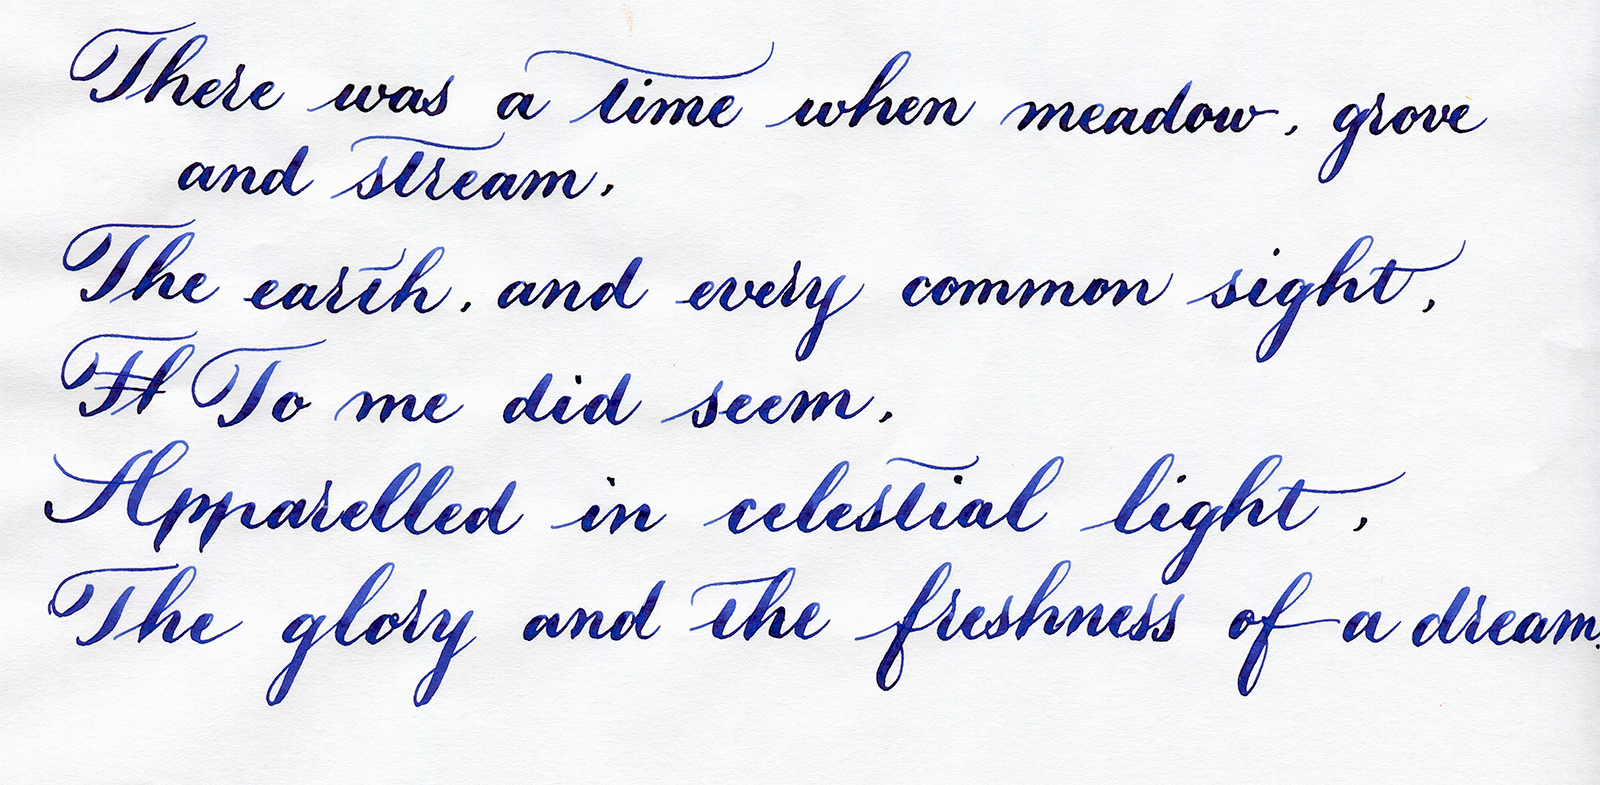 There was a time when meadow, grove
and stream,
The earth, and every common sight,
To me did seem,
Apparelled in celestial light,
The glory and the freshness of a dream.